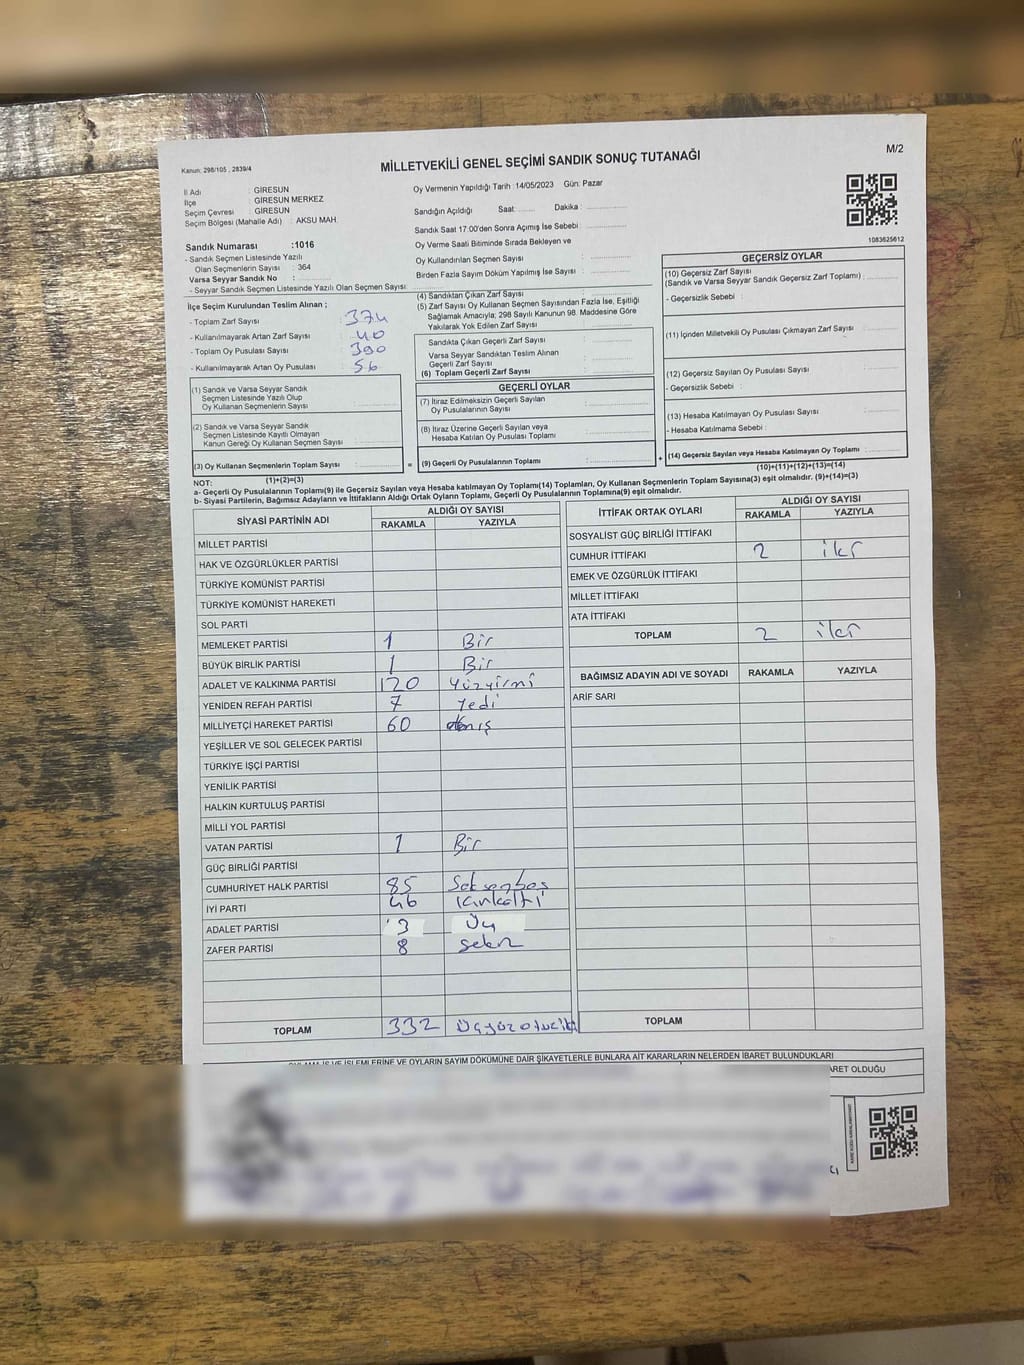 Kanun: 298/105 , 2839/4
MİLLETVEKİLİ GENEL SEÇİMİ SANDIK SONUÇ TUTANAĞI
M/2
İl Adı : GİRESUN
İlçe : GİRESUN MERKEZ
Seçim Çevresi : GİRESUN
Seçim Bölgesi (Mahalle Adı) : AKSU MAH.
Sandık Numarası :1016
- Sandık Seçmen Listesinde Yazılı
Olan Seçmenlerin Sayısı : 364
Varsa Seyyar Sandık No :
- Seyyar Sandık Seçmen Listesinde Yazılı Olan Seçmen Sayısı
İlçe Seçim Kurulundan Teslim Alınan ;
- Toplam Zarf Sayısı : 374
- Kullanılmayarak Artan Zarf Sayısı : 40
- Toplam Oy Pusulası Sayısı : 390
- Kullanılmayarak Artan Oy Pusulası : 56
(1) Sandık ve Varsa Seyyar Sandık
Seçmen Listesinde Yazılı Olup
Oy Kullanan Seçmenlerin Sayısı :
(2) Sandık ve Varsa Seyyar Sandık
Seçmen Listesinde Kayıtlı Olmayan
Kanun Gereği Oy Kullanan Seçmen Sayısı :
(3) Oy Kullanan Seçmenlerin Toplam Sayısı :
(1)+(2)=(3)
Oy Vermenin Yapıldığı Tarih :14/05/2023 Gün: Pazar
Sandığın Açıldığı Saat: Dakika :
Sandık Saat 17:00'den Sonra Açılmış İse Sebebi :
Oy Verme Saati Bitiminde Sırada Bekleyen ve
Oy Kullandırılan Seçmen Sayısı :
Birden Fazla Sayım Döküm Yapılmış İse Sayısı :
(4) Sandıktan Çıkan Zarf Sayısı :
(5) Zarf Sayısı Oy Kullanan Seçmen Sayısından Fazla İse, Eşitliği
Sağlamak Amacıyla; 298 Sayılı Kanunun 98. Maddesine Göre
Yakılarak Yok Edilen Zarf Sayısı :
Sandıkta Çıkan Geçerli Zarf Sayısı :
Varsa Seyyar Sandıktan Teslim Alınan
Geçerli Zarf Sayısı :
(6) Toplam Geçerli Zarf Sayısı :
GEÇERLİ OYLAR
(7) İtiraz Edilmeksizin Geçerli Sayılan
Oy Pusulalarının Sayısı :
(8) İtiraz Üzerine Geçerli Sayılan veya
Hesaba Katılan Oy Pusulası Toplamı :
= (9) Geçerli Oy Pusulalarının Toplamı :
1083625612
GEÇERSİZ OYLAR
(10) Geçersiz Zarf Sayısı
(Sandık ve Varsa Seyyar Sandık Geçersiz Zarf Toplamı) :
- Geçersizlik Sebebi :
(11) İçinden Milletvekili Oy Pusulası Çıkmayan Zarf Sayısı :
(12) Geçersiz Sayılan Oy Pusulası Sayısı :
- Geçersizlik Sebebi :
(13) Hesaba Katılmayan Oy Pusulası Sayısı :
- Hesaba Katılmama Sebebi :
+ (14) Geçersiz Sayılan veya Hesaba Katılmayan Oy Toplamı :
(10)+(11)+(12)+(13)=(14)
NOT:
a- Geçerli Oy Pusulalarının Toplamı(9) ile Geçersiz Sayılan veya Hesaba Katılmayan Oy Toplamı(14) Toplamları, Oy Kullanan Seçmenlerin Toplam Sayısına(3) eşit olmalıdır. (9)+(14)=(3)
b- Siyasi Partilerin, Bağımsız Adayların ve İttifakların Aldığı Ortak Oyların Toplamı, Geçerli Oy Pusulalarının Toplamına(9) eşit olmalıdır.
SİYASİ PARTİNİN ADI ALDIĞI OY SAYISI
RAKAMLA YAZIYLA
MİLLET PARTİSİ
HAK VE ÖZGÜRLÜKLER PARTİSİ
TÜRKİYE KOMÜNİST PARTİSİ
TÜRKİYE KOMÜNİST HAREKETİ
SOL PARTİ
MEMLEKET PARTİSİ 1 Bir
BÜYÜK BİRLİK PARTİSİ 1 Bir
ADALET VE KALKINMA PARTİSİ 120 Yüzyirmi
YENİDEN REFAH PARTİSİ 7 Yedi
MİLLİYETÇİ HAREKET PARTİSİ 60
YEŞİLLER VE SOL GELECEK PARTİSİ
TÜRKİYE İŞÇİ PARTİSİ
YENİLİK PARTİSİ
HALKIN KURTULUŞ PARTİSİ
MİLLİ YOL PARTİSİ
VATAN PARTİSİ 1 Bir
GÜÇ BİRLİĞİ PARTİSİ
CUMHURİYET HALK PARTİSİ 85 Seksenbeş
İYİ PARTİ 46 Kırkaltı
ADALET PARTİSİ 3 Üç
ZAFER PARTİSİ 8 Sekiz
TOPLAM 332
İTTİFAK ORTAK OYLARI ALDIĞI OY SAYISI
RAKAMLA YAZIYLA
SOSYALİST GÜÇ BİRLİĞİ İTTİFAKI
CUMHUR İTTİFAKI 2 iki
EMEK VE ÖZGÜRLÜK İTTİFAKI
MİLLET İTTİFAKI
ATA İTTİFAKI
TOPLAM 2 iki
BAĞIMSIZ ADAYIN ADI VE SOYADI RAKAMLA YAZIYLA
ARİF SARI
TOPLAM
İŞLEMLERİNE VE OYLARIN SAYIM DÖKÜMÜNE DAİR ŞİKAYETLERLE BUNLARA AİT KARARLARIN NELERDEN İBARET BULUNDUKLARI
ARET OLDUĞU